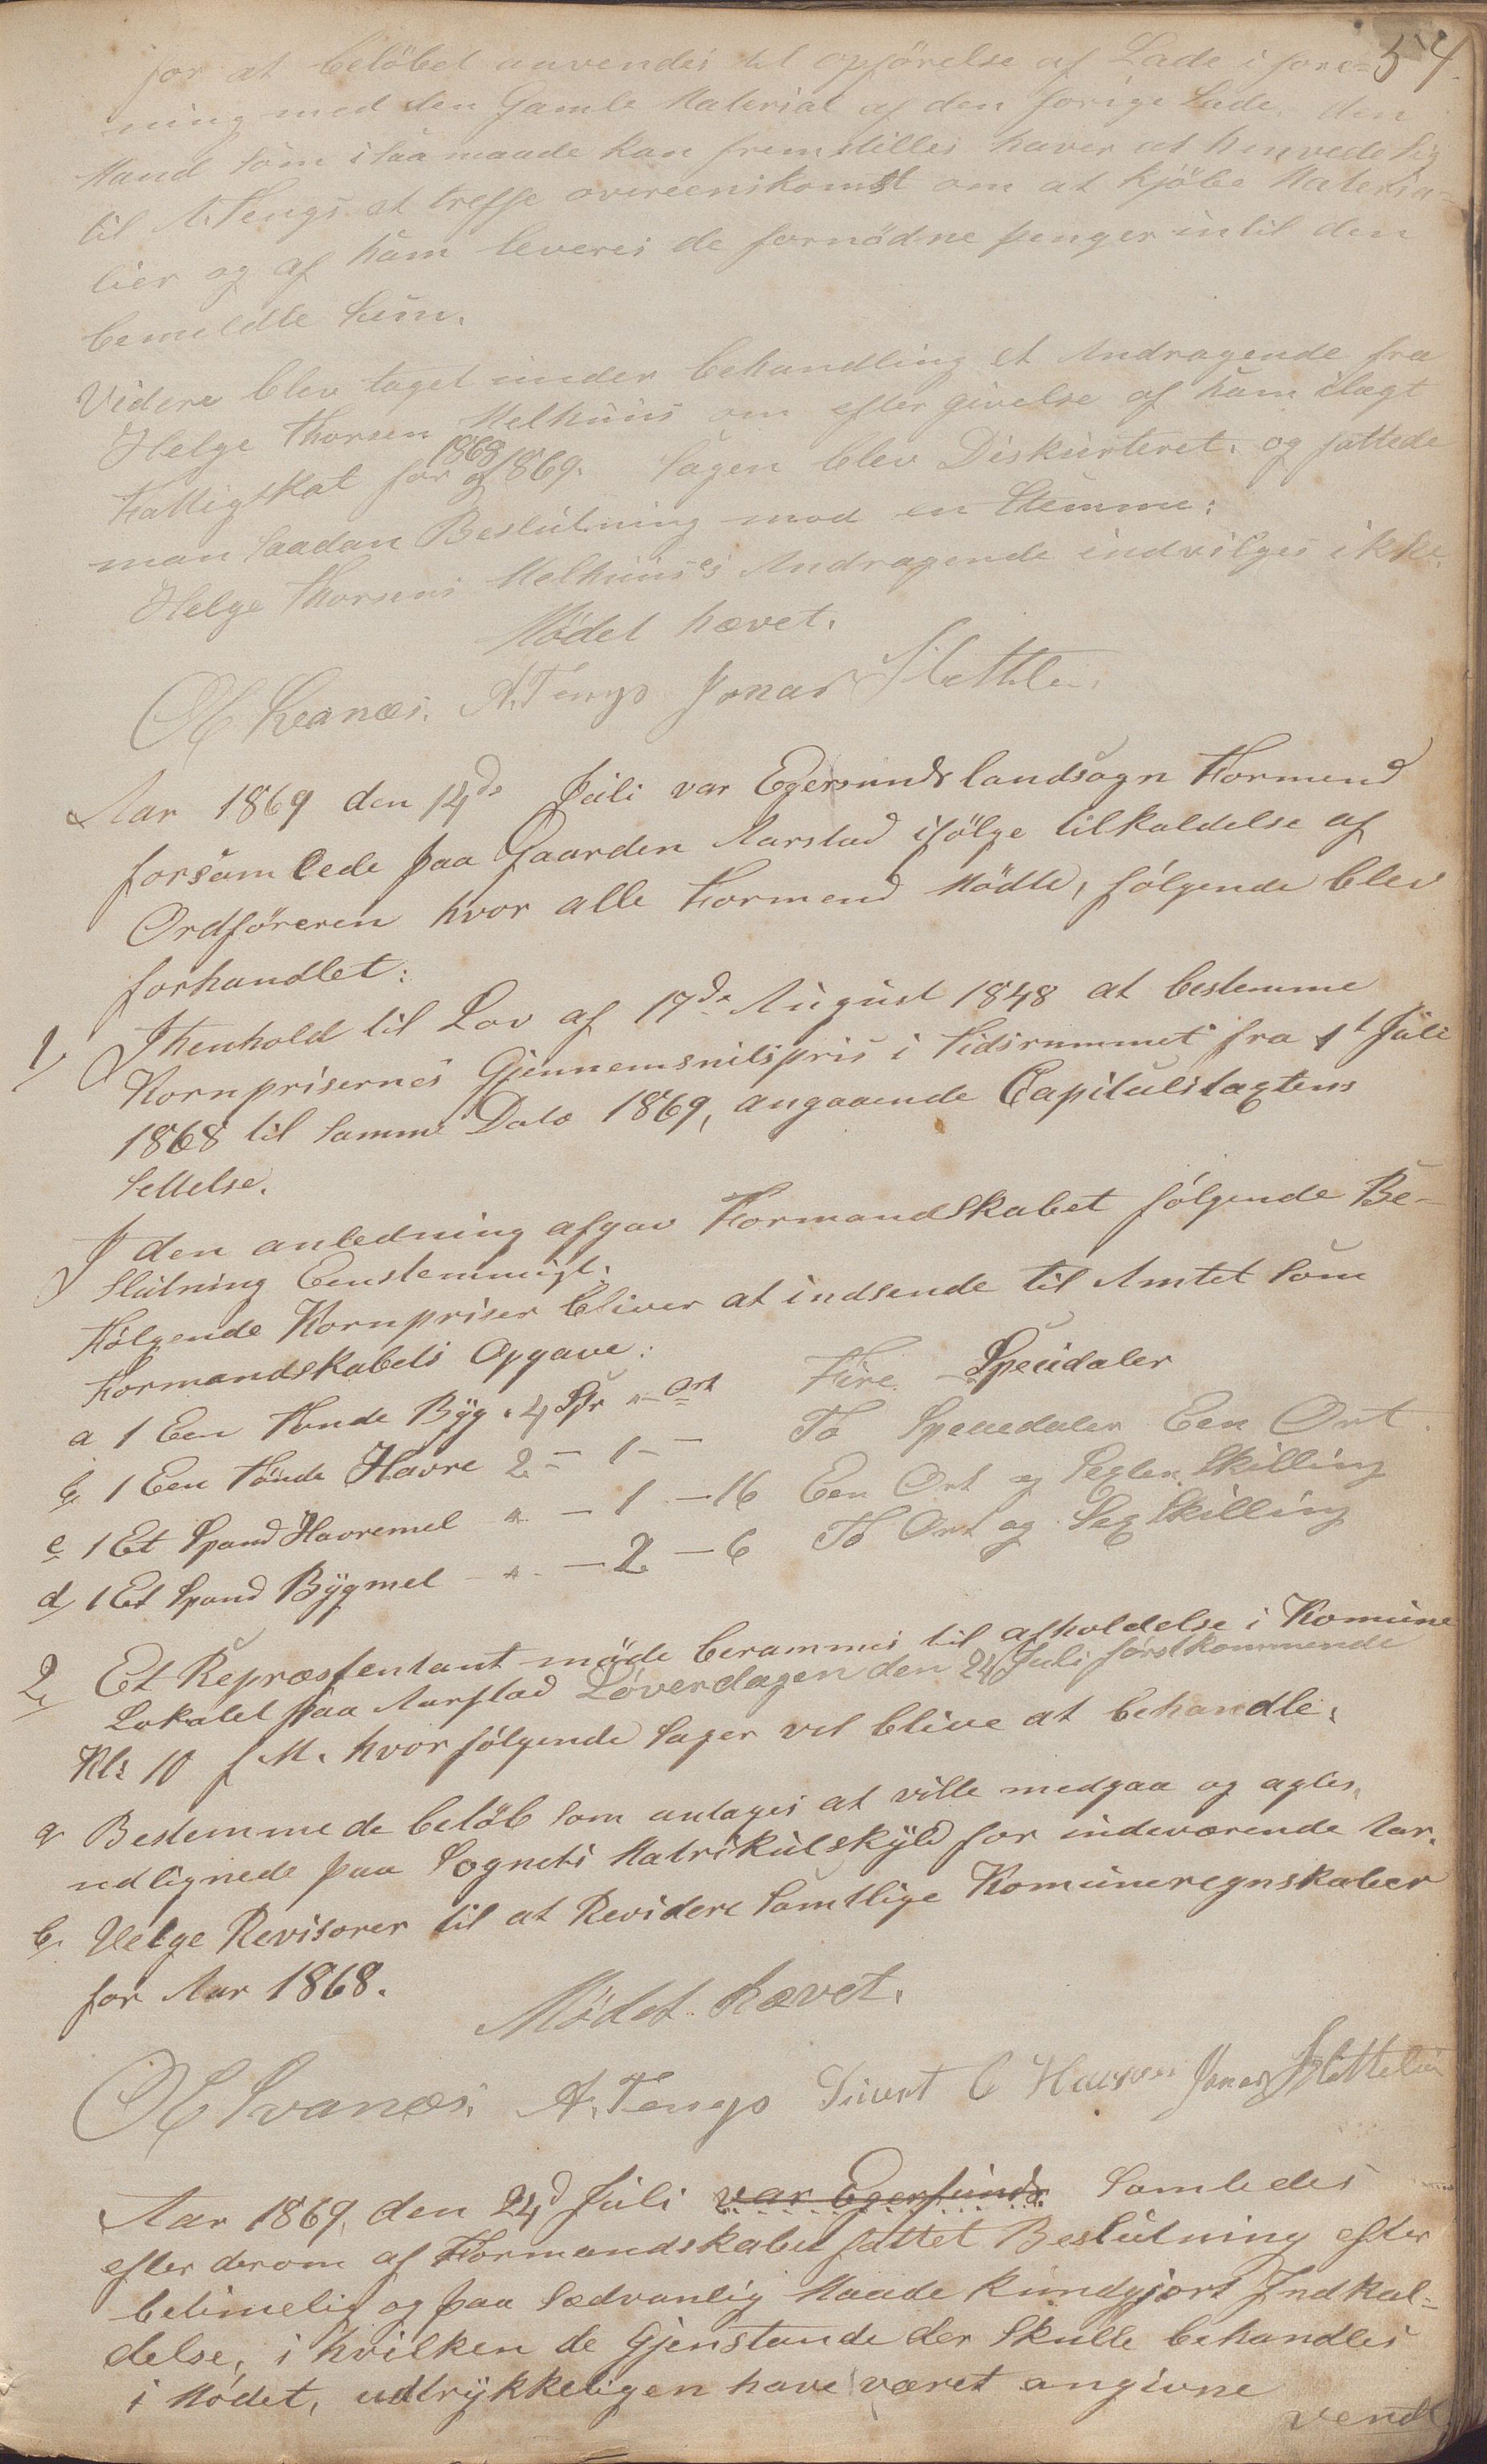 54.
for at belöbet anvendes til opförelse af Lade i fore-
ning med den Gamle Material af den forige Lade. den
Mand som i saa maade kan fremstilles haver at henvede sig
til A. Tengs at treffe overeenskomst om at kjöbe Materia-
lier og af ham leveres de fornödne penger intil den
bemeldte Sum.
Videre blev taget under behandling et Andragende fra
Helge Thorsen Melhuus om eftergivelse af ham ilagt
Fattigskat for 1868 og 1869. Sagen blev Diskurteret. og fattede
man saadan Beslutning mod en Stemme:
Helge Thorsens Melhuus's Andragende indvilges ikke.
Mödet hævet.
OC Svanæs. A. Tengs Jonas Slettebö
Aar 1869 den 14de Juli var Egersunds landsogn Formend
forsamlede paa Gaarden Aarstad ifölge tilkaldelse af
Ordföreren hvor alle Formend Mödte, fölgende blev
forhandlet:
1/ I henhold til Lov af 17de August 1848 at bestemme
Kornprisernes Gjennemsnitspris i Tidsrummet fra 1t Juli
1868 til samme Dato 1869, angaaende Capitulstaxtens
Settelse.
I den anledning afgav Formandskabet fölgende Be-
slutning Eenstemmigt.
Fölgende Kornpriser bliver at indsende til Amtet som
Formandskabets Opgave:
a 1 Een Tönde Byg. 4 Spr " Ort Fire Speudaler
b 1 Een Tönde Havre 2 – 1 – To Speuedaler Een Ort.
c 1 Et Spand Havremel " – 1 – 16 Een Ort og Sexten Skilling
d/ 1 Et Spand Bygmel – " – 2 – 6 To Ort og Sex Skilling
2/ Et Repræsentant möde berammes til afholdelse i Komune
Lokalet paa Aarstad Löverdagen den 24 Juli förstkommende
Kl: 10 f M. hvor fölgende Sager vil blive at behandle.
a Bestemme de belöb som antages at ville medgaa og agtes
udlignede paa Sognets Matrikulskyld for indeværende Aar.
b. Velge Revisorer til at Revidere Samtlige Komuneregnskaber
for Aar 1868.
Mödet hævet.
OC Svanæs. A. Tengs Sivert C Jonas Slettebö
Aar 1869, den 24d Juli var Egersunds Samledes
efter derom af Formandskabet fattet Beslutning efter
betimelig og paa sædvanlig Maade kundgjort Indkal-
delse, i hvilken de Gjenstande der Skulle behandles
i Mödet, udtrykkeligen have været angivne
vend